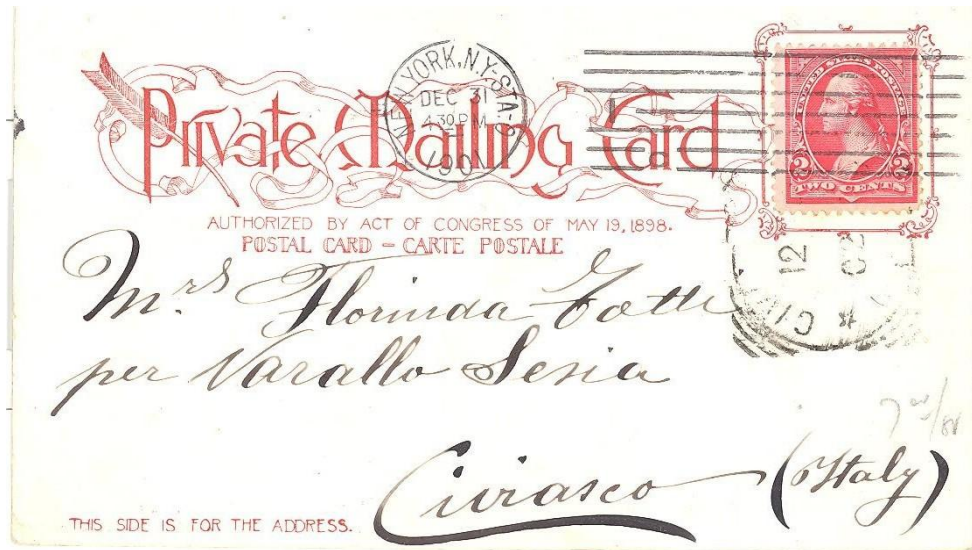 Private Mailing Card
NEW YORK, N.Y.-STA.
DEC 31
4 30 P.M.
1901
UNITED STATES POSTAGE
2 2
TWO CENTS
AUTHORIZED BY ACT OF CONGRESS OF MAY 19, 1898.
POSTAL CARD – CARTE POSTALE
12
02
Mrs. Florinda Totti
per Varallo Sesia
Civiasco (Italy)
THIS SIDE IS FOR THE ADDRESS.